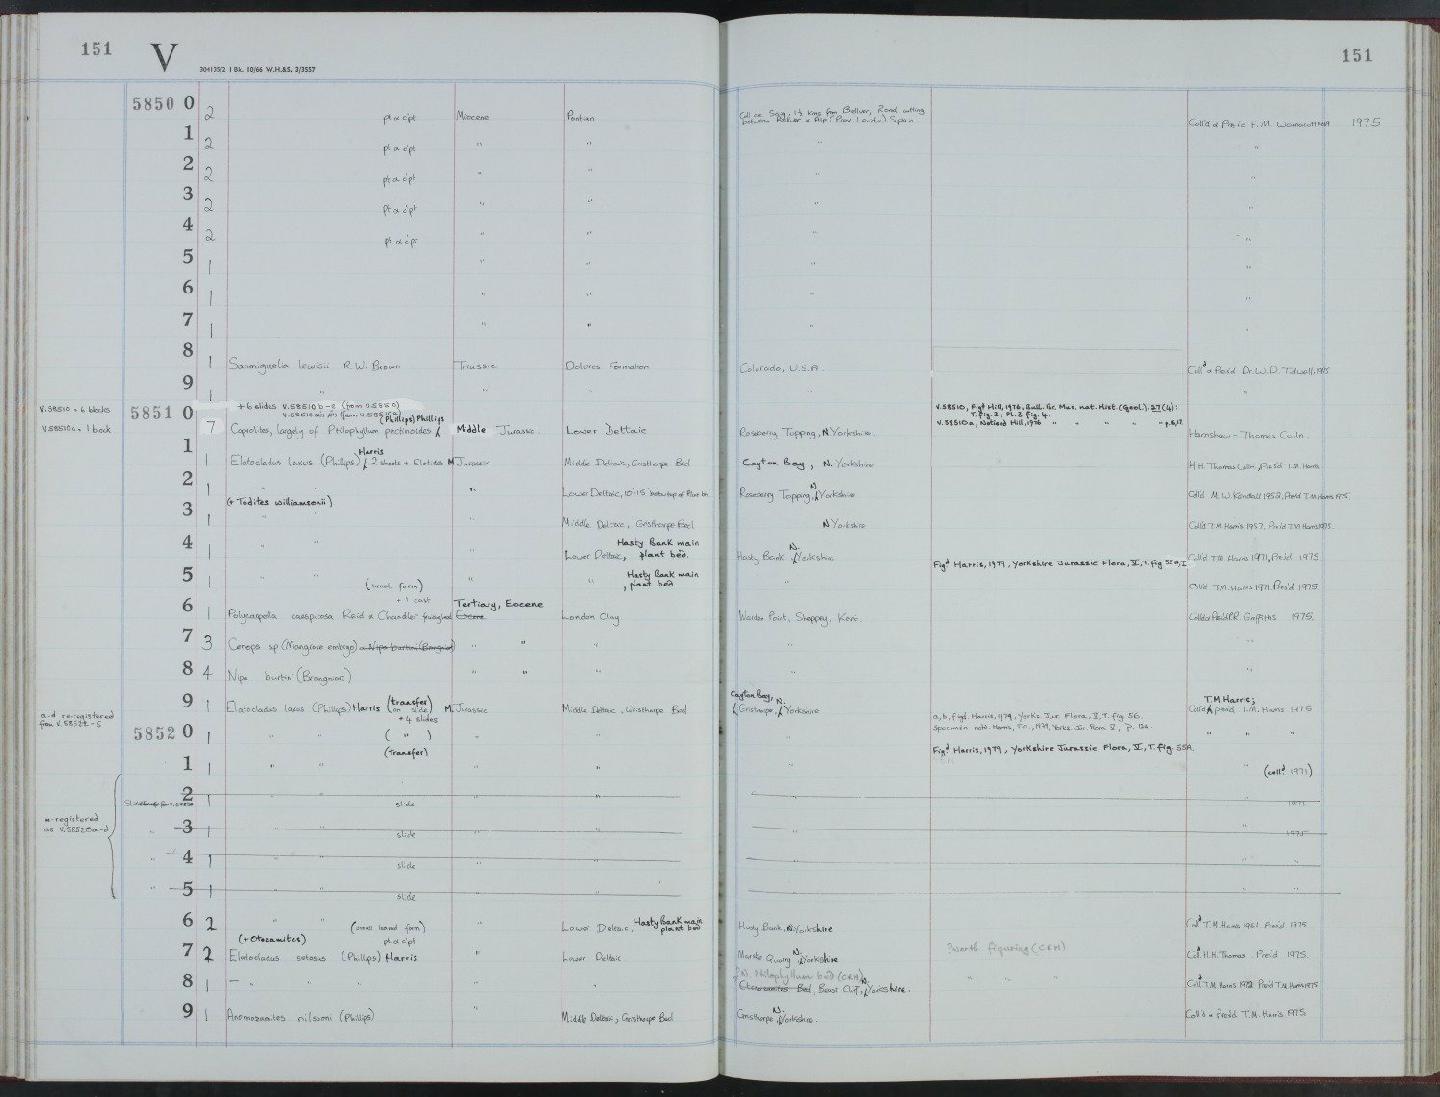 151
V
304135/2 1 Bk. 10/66 W.H.&S. 3/3557
151
5850 0 2 pt & c'pt Miocene Pontian
Bellver, Road cutting
Spain
1975
1 2 pt & c'pt " "
2 2 pt & c'pt " "
3 2 pt & c'pt " "
4 2 pt & c'pt " "
5 1 " "
6 1 " "
7 1 " "
8 1 Sanmiguelia lewisii R.W. Brown Triassic Dolores Formation Colorado, U.S.A. Coll'd & Pres'd Dr. W.D. Tidwell, 1975
9 1 " " "
V.58510 = 6 blocks
V.58510a = 1 block
+ 6 slides V.58510b-e
5851 0 7 Coprolites, largely of Ptilophyllum pectinoides (Phillips) Phillips Middle Jurassic Lower Deltaic Roseberry Topping, N Yorkshire.
V.58510, Figd Hill, 1976, Bull. Br. Mus. nat. Hist. (Geol.). 27 (4):
T.fig. 2, Pl. 2 fig. 4.
V.58510a, Noticed Hill, 1976 " " " "
Hamshaw-Thomas Colln.
1 1 Elatocladus laxus (Phillips) Harris M Jurassic Middle Deltaic, Gristhorpe Bed Cayton Bay, N. Yorkshire H.H. Thomas Colln, Pres'd T.M. Harris
2 1 " Lower Deltaic, 10-15' Roseberry Topping, N Yorkshire Coll'd M.W. Kendall 1952, Pres'd T.M. Harris 1975
(+ Todites williamsonii)
3 1 " " " Middle Deltaic, Gristhorpe Bed N Yorkshire Coll'd T.M. Harris 1957, Pres'd T.M. Harris 1975.
4 1 " " " Lower Deltaic, Hasty Bank main plant bed. Hasty Bank N. Yorkshire Figd Harris, 1979, Yorkshire Jurassic Flora, V, T. fig Coll'd T.M. Harris 1971, Pres'd 1975
5 1 " " (small form) " " Hasty Bank main plant bed " Coll'd T.M. Harris 1971, Pres'd 1975
+ 1 cast
6 1 Polycarpella caespitosa Reid & Chandler Tertiary, Eocene London Clay Warden Point, Sheppey, Kent. Coll'd & Pres'd P.R. Griffiths 1975.
7 3 Ceriops sp (Mangrove embryo) & Nipa burtini (Brongniart) " " " " "
8 4 Nipa burtini (Brongniart) " " " " "
9 1 Elatocladus laxus (Phillips) Harris (transfer) on slide + 4 slides M. Jurassic Middle Deltaic, Gristhorpe Bed Cayton Bay, Gristhorpe, N. Yorkshire
a, b, figd. Harris, 1979, Yorks. Jur. Flora, V, T. fig 56.
T.M Harris; Coll'd & pres'd. T.M. Harris 1975
a-d re-registered
from V.58522-5
5852 0 1 " " ( " ) " " " " " "
(transfer)
1 1 " " " " " Figd Harris, 1979, Yorkshire Jurassic Flora, V, T. fig. 55A.
" (colld 1971)
re-registered
as V.58520a-d
2 1 slide " "
3 1 slide " "
4 1 slide " "
5 1 slide " "
6 2 " " (small leaved form) " Lower Deltaic, Hasty Bank main plant bed Hasty Bank, N. Yorkshire Colld T.M. Harris 1961 Pres'd 1975
(+ Otozamites) pt & c'pt
7 2 Elatocladus setosus (Phillips) Harris " Lower Deltaic Marske Quarry, N. Yorkshire ?worth figuring (CRH) Colld. H.H. Thomas Pres'd 1975.
8 1 " " " Ptilophyllum bed (CRH)
Otozamites Bed, Beast Cliff, N. Yorkshire. " " " Colld. T.M. Harris 1972 Pres'd T.M. Harris 1975
9 1 Anomozamites nilssoni (Phillips) " Middle Deltaic, Gristhorpe Bed Gristhorpe, N. Yorkshire. Coll'd & Pres'd T.M. Harris 1975